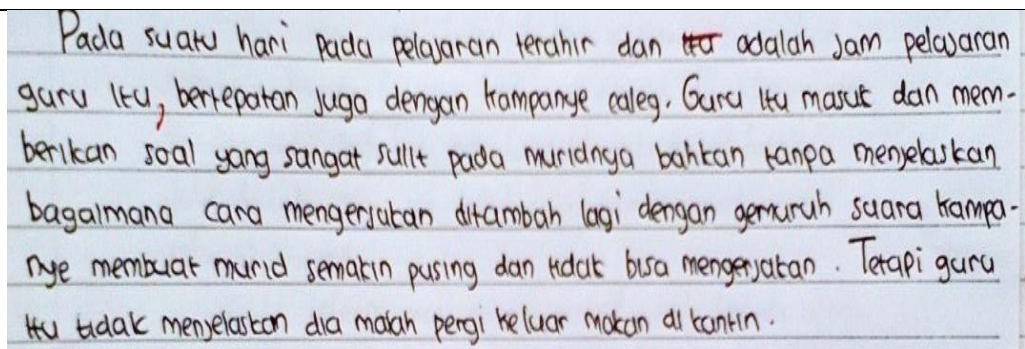 Pada suatu hari pada pelajaran terahir dan itu adalah jam pelajaran
guru itu, bertepatan juga dengan kampanye caleg. Guru itu masuk dan mem-
berikan soal yang sangat sulit pada muridnya bahkan tanpa menjelaskan
bagaimana cara mengerjakan ditambah lagi dengan gemuruh suara kampa-
nye membuat murid semakin pusing dan tidak bisa mengerjakan. Tetapi guru
itu tidak menjelaskan dia malah pergi keluar makan di kantin.